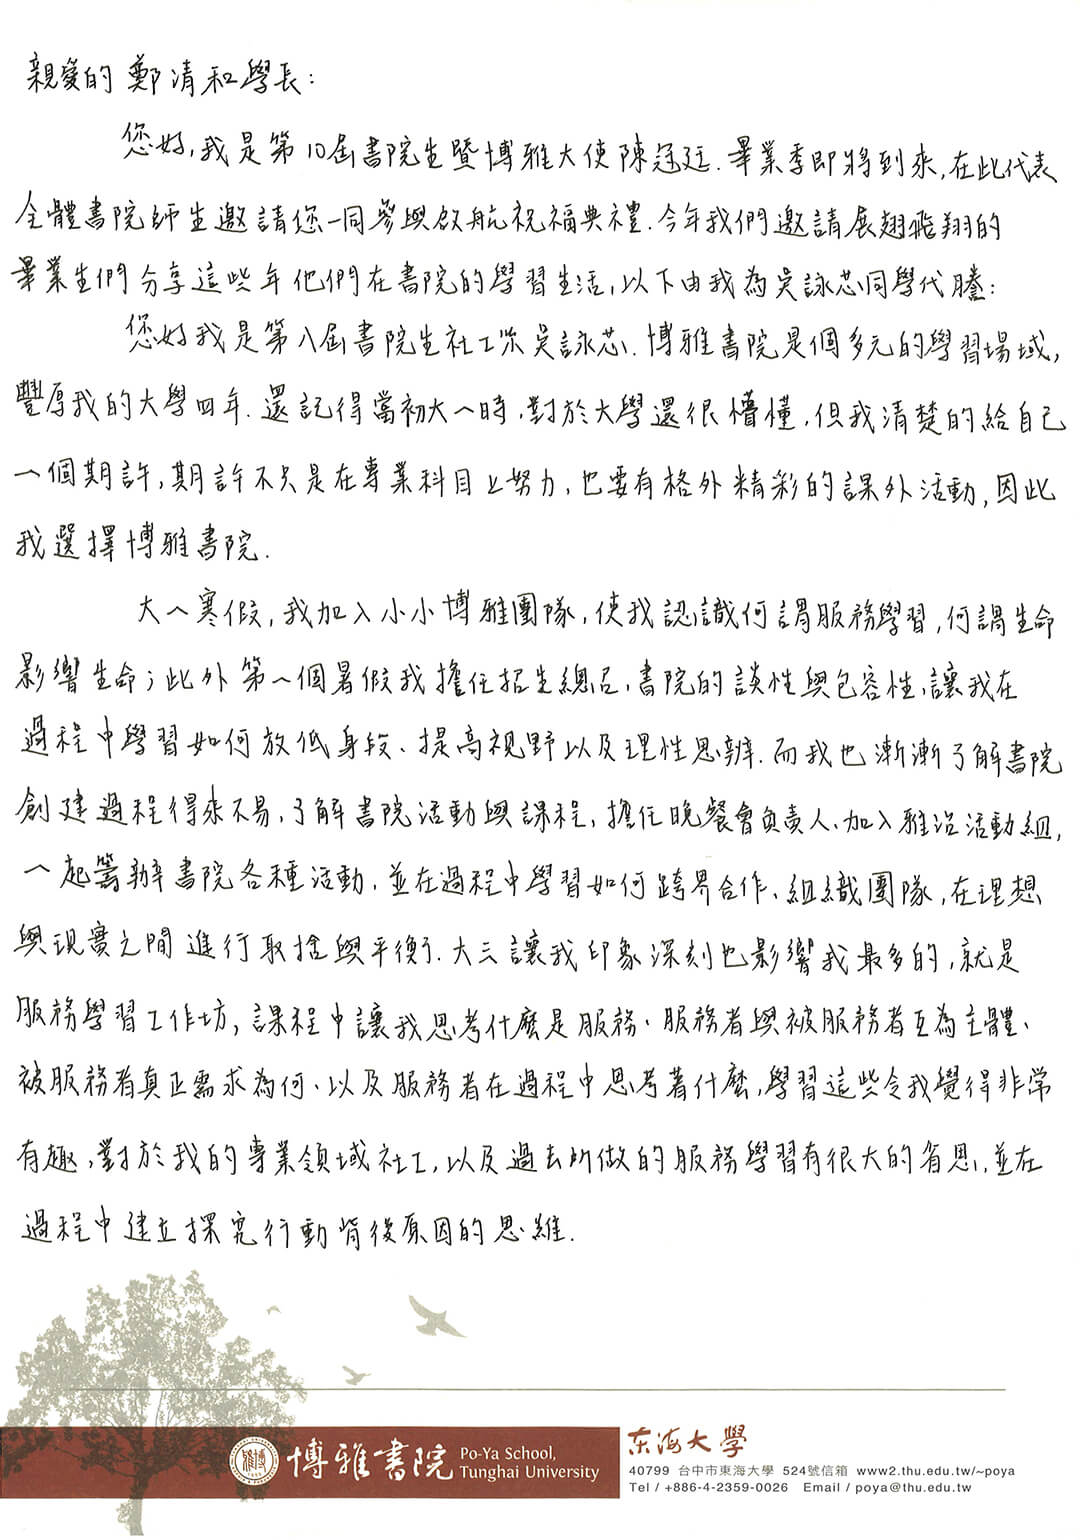 親愛的 鄭清和學長:
您好,我是第10屆書院生暨博雅大使陳冠廷.畢業季即將到來,在此代表
全體書院師生邀請您一同參與啟航祝福典禮.今年我們邀請展翅飛翔的
畢業生們分享這些年他們在書院的學習生活,以下由我為吳詠芯同學代謄:
您好我是第八屆書院生社工系吳詠芯.博雅書院是個多元的學習場域,
豐厚我的大學四年.還記得當初大一時,對於大學還很懵懂,但我清楚的給自己
一個期許,期許不只是在專業科目上努力,也要有格外精彩的課外活動,因此
我選擇博雅書院.
大一寒假,我加入小小博雅團隊,使我認識何謂服務學習,何謂生命
影響生命;此外第一個暑假我擔任招生總召,書院的談性與包容性,讓我在
過程中學習如何放低身段、提高視野以及理性思辨.而我也漸漸了解書院
創建過程得來不易,了解書院活動與課程,擔任晚餐會負責人、加入雅治活動組,
一起籌辦書院各種活動,並在過程中學習如何跨界合作、組織團隊,在理想
與現實之間進行取捨與平衡.大三讓我印象深刻也影響我最多的,就是
服務學習工作坊,課程中讓我思考什麼是服務、服務者與被服務者互為主體、
被服務者真正需求為何、以及服務者在過程中思考著什麼,學習這些令我覺得非常
有趣,對於我的專業領域社工,以及過去所做的服務學習有很大的省思,並在
過程中建立探究行動背後原因的思維.
博雅書院 Po-Ya School,
Tunghai University
東海大學
40799 台中市東海大學 524號信箱 www2.thu.edu.tw/~poya
Tel / +886-4-2359-0026 Email / poya@thu.edu.tw